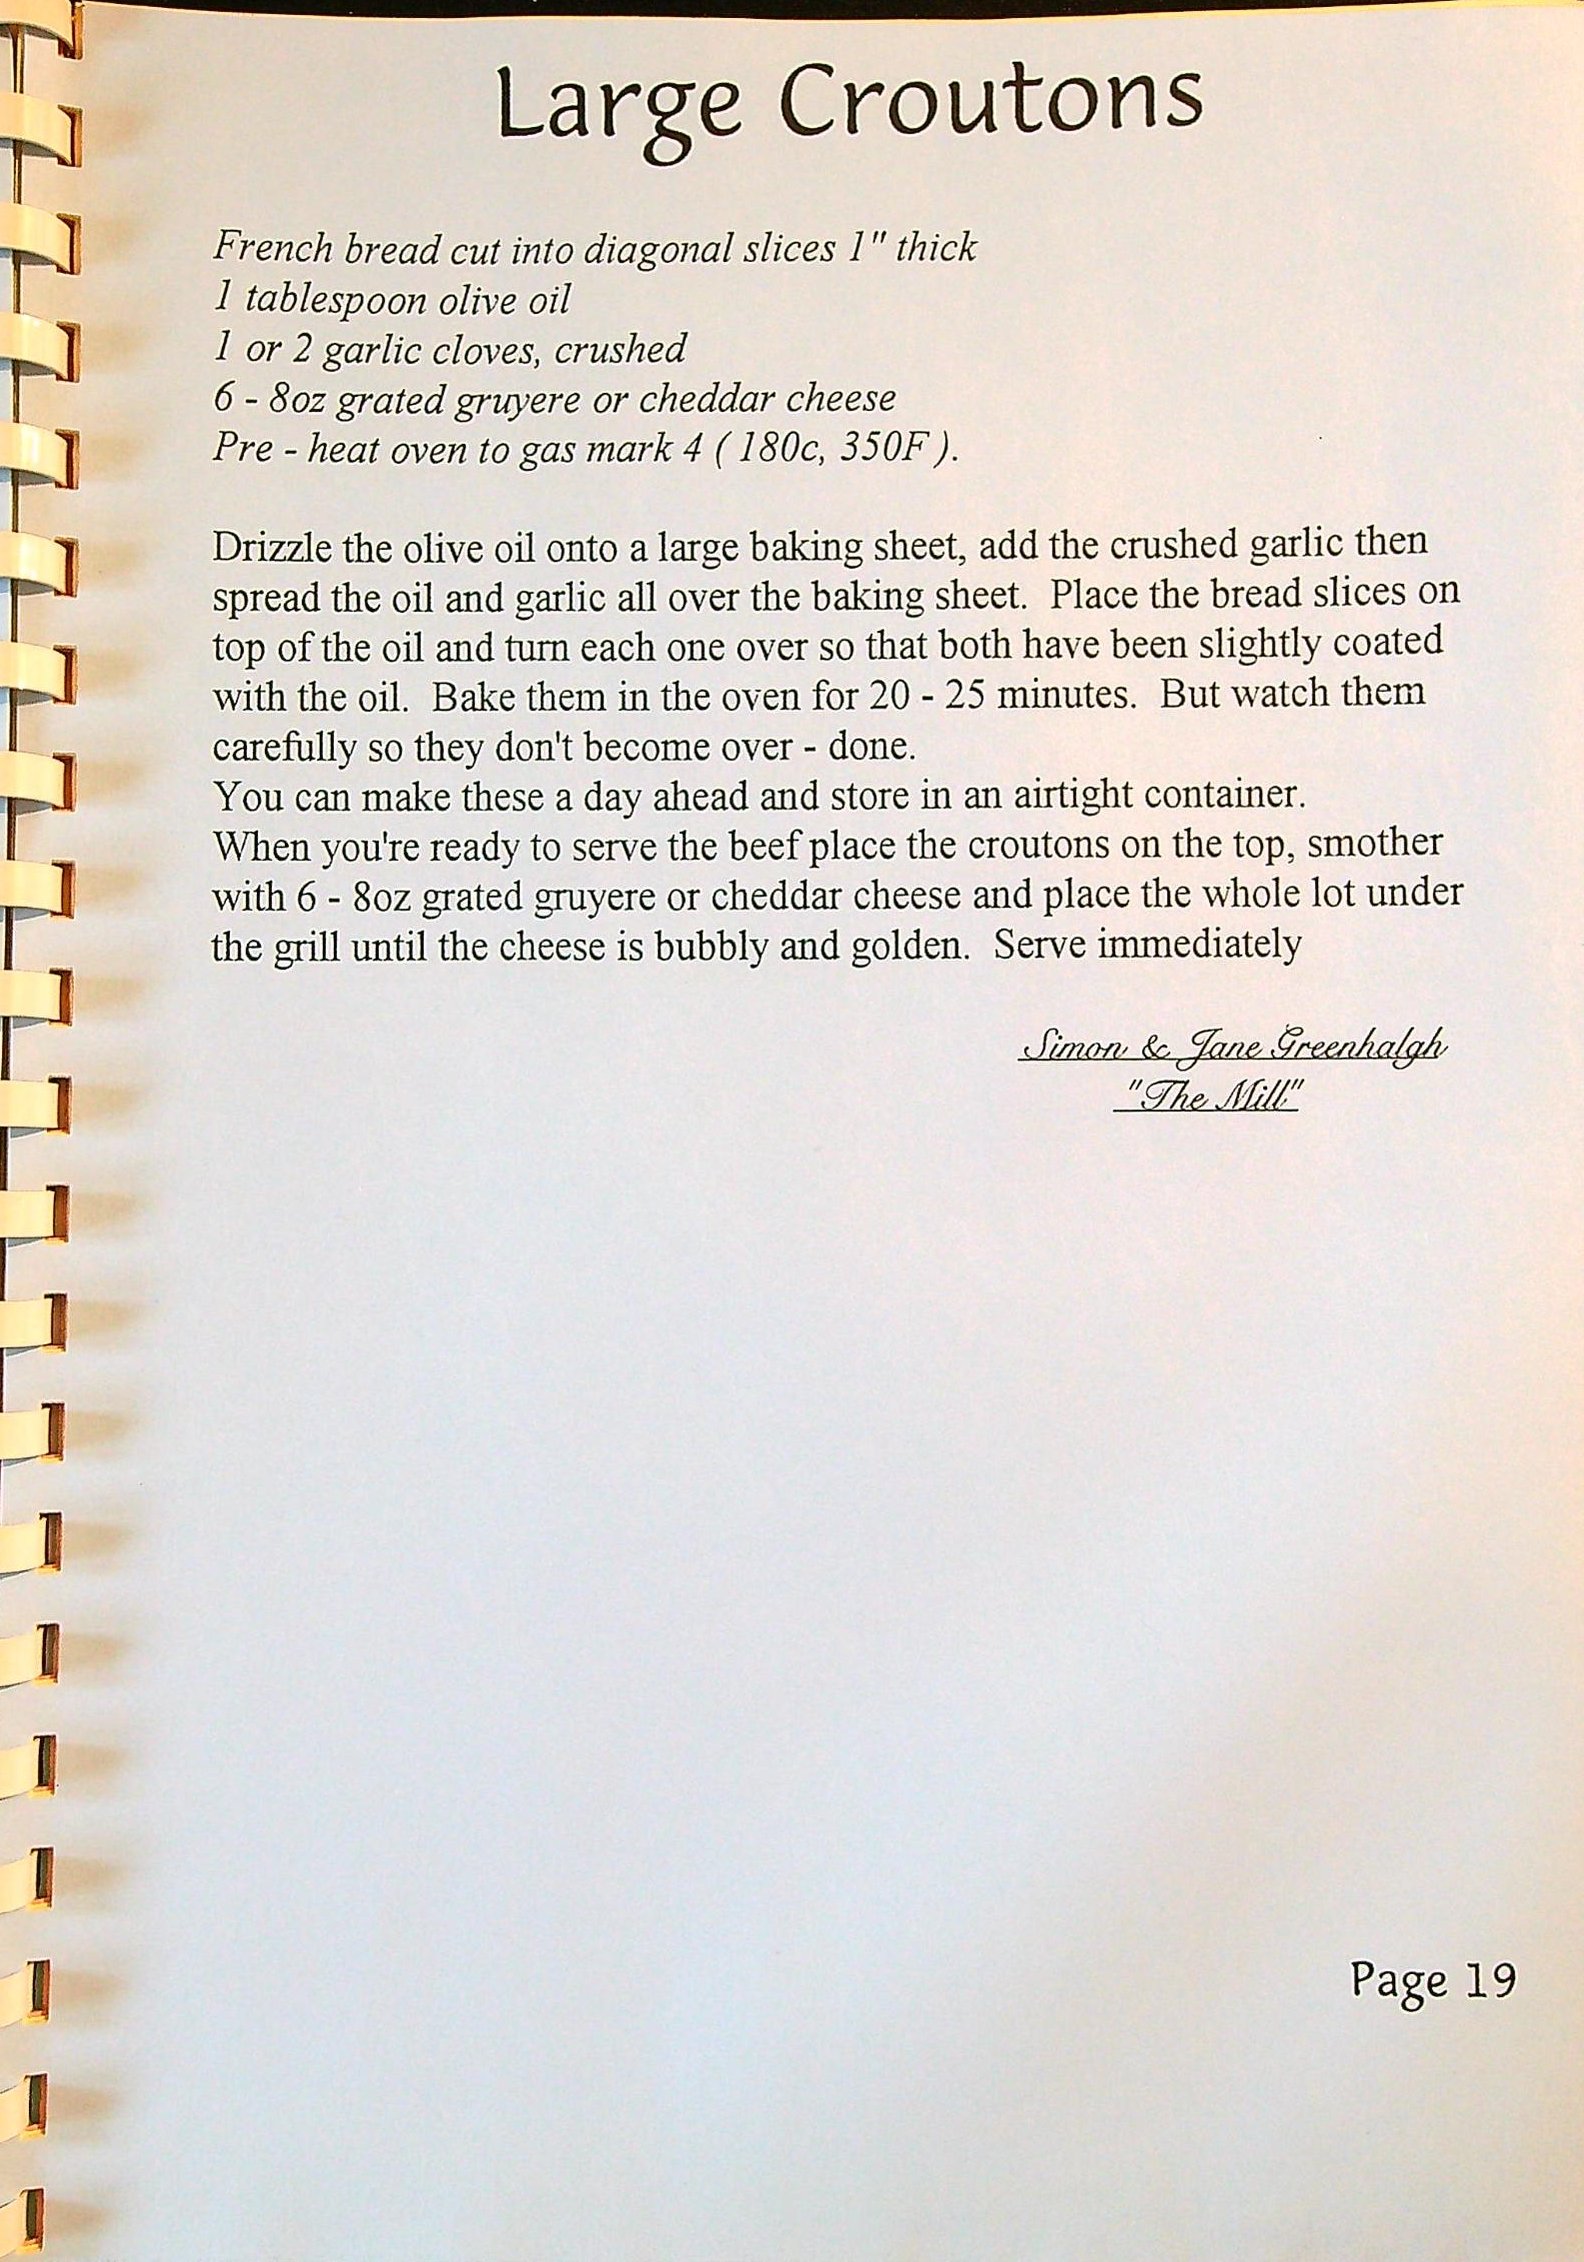 Large Croutons
French bread cut into diagonal slices 1" thick
1 tablespoon olive oil
1 or 2 garlic cloves, crushed
6 - 8oz grated gruyere or cheddar cheese
Pre - heat oven to gas mark 4 ( 180c, 350F ).
Drizzle the olive oil onto a large baking sheet, add the crushed garlic then
spread the oil and garlic all over the baking sheet.  Place the bread slices on
top of the oil and turn each one over so that both have been slightly coated
with the oil.  Bake them in the oven for 20 - 25 minutes.  But watch them
carefully so they don't become over - done.
You can make these a day ahead and store in an airtight container.
When you're ready to serve the beef place the croutons on the top, smother
with 6 - 8oz grated gruyere or cheddar cheese and place the whole lot under
the grill until the cheese is bubbly and golden.  Serve immediately
Simon & Jane Greenhalgh
"The Mill"
Page 19